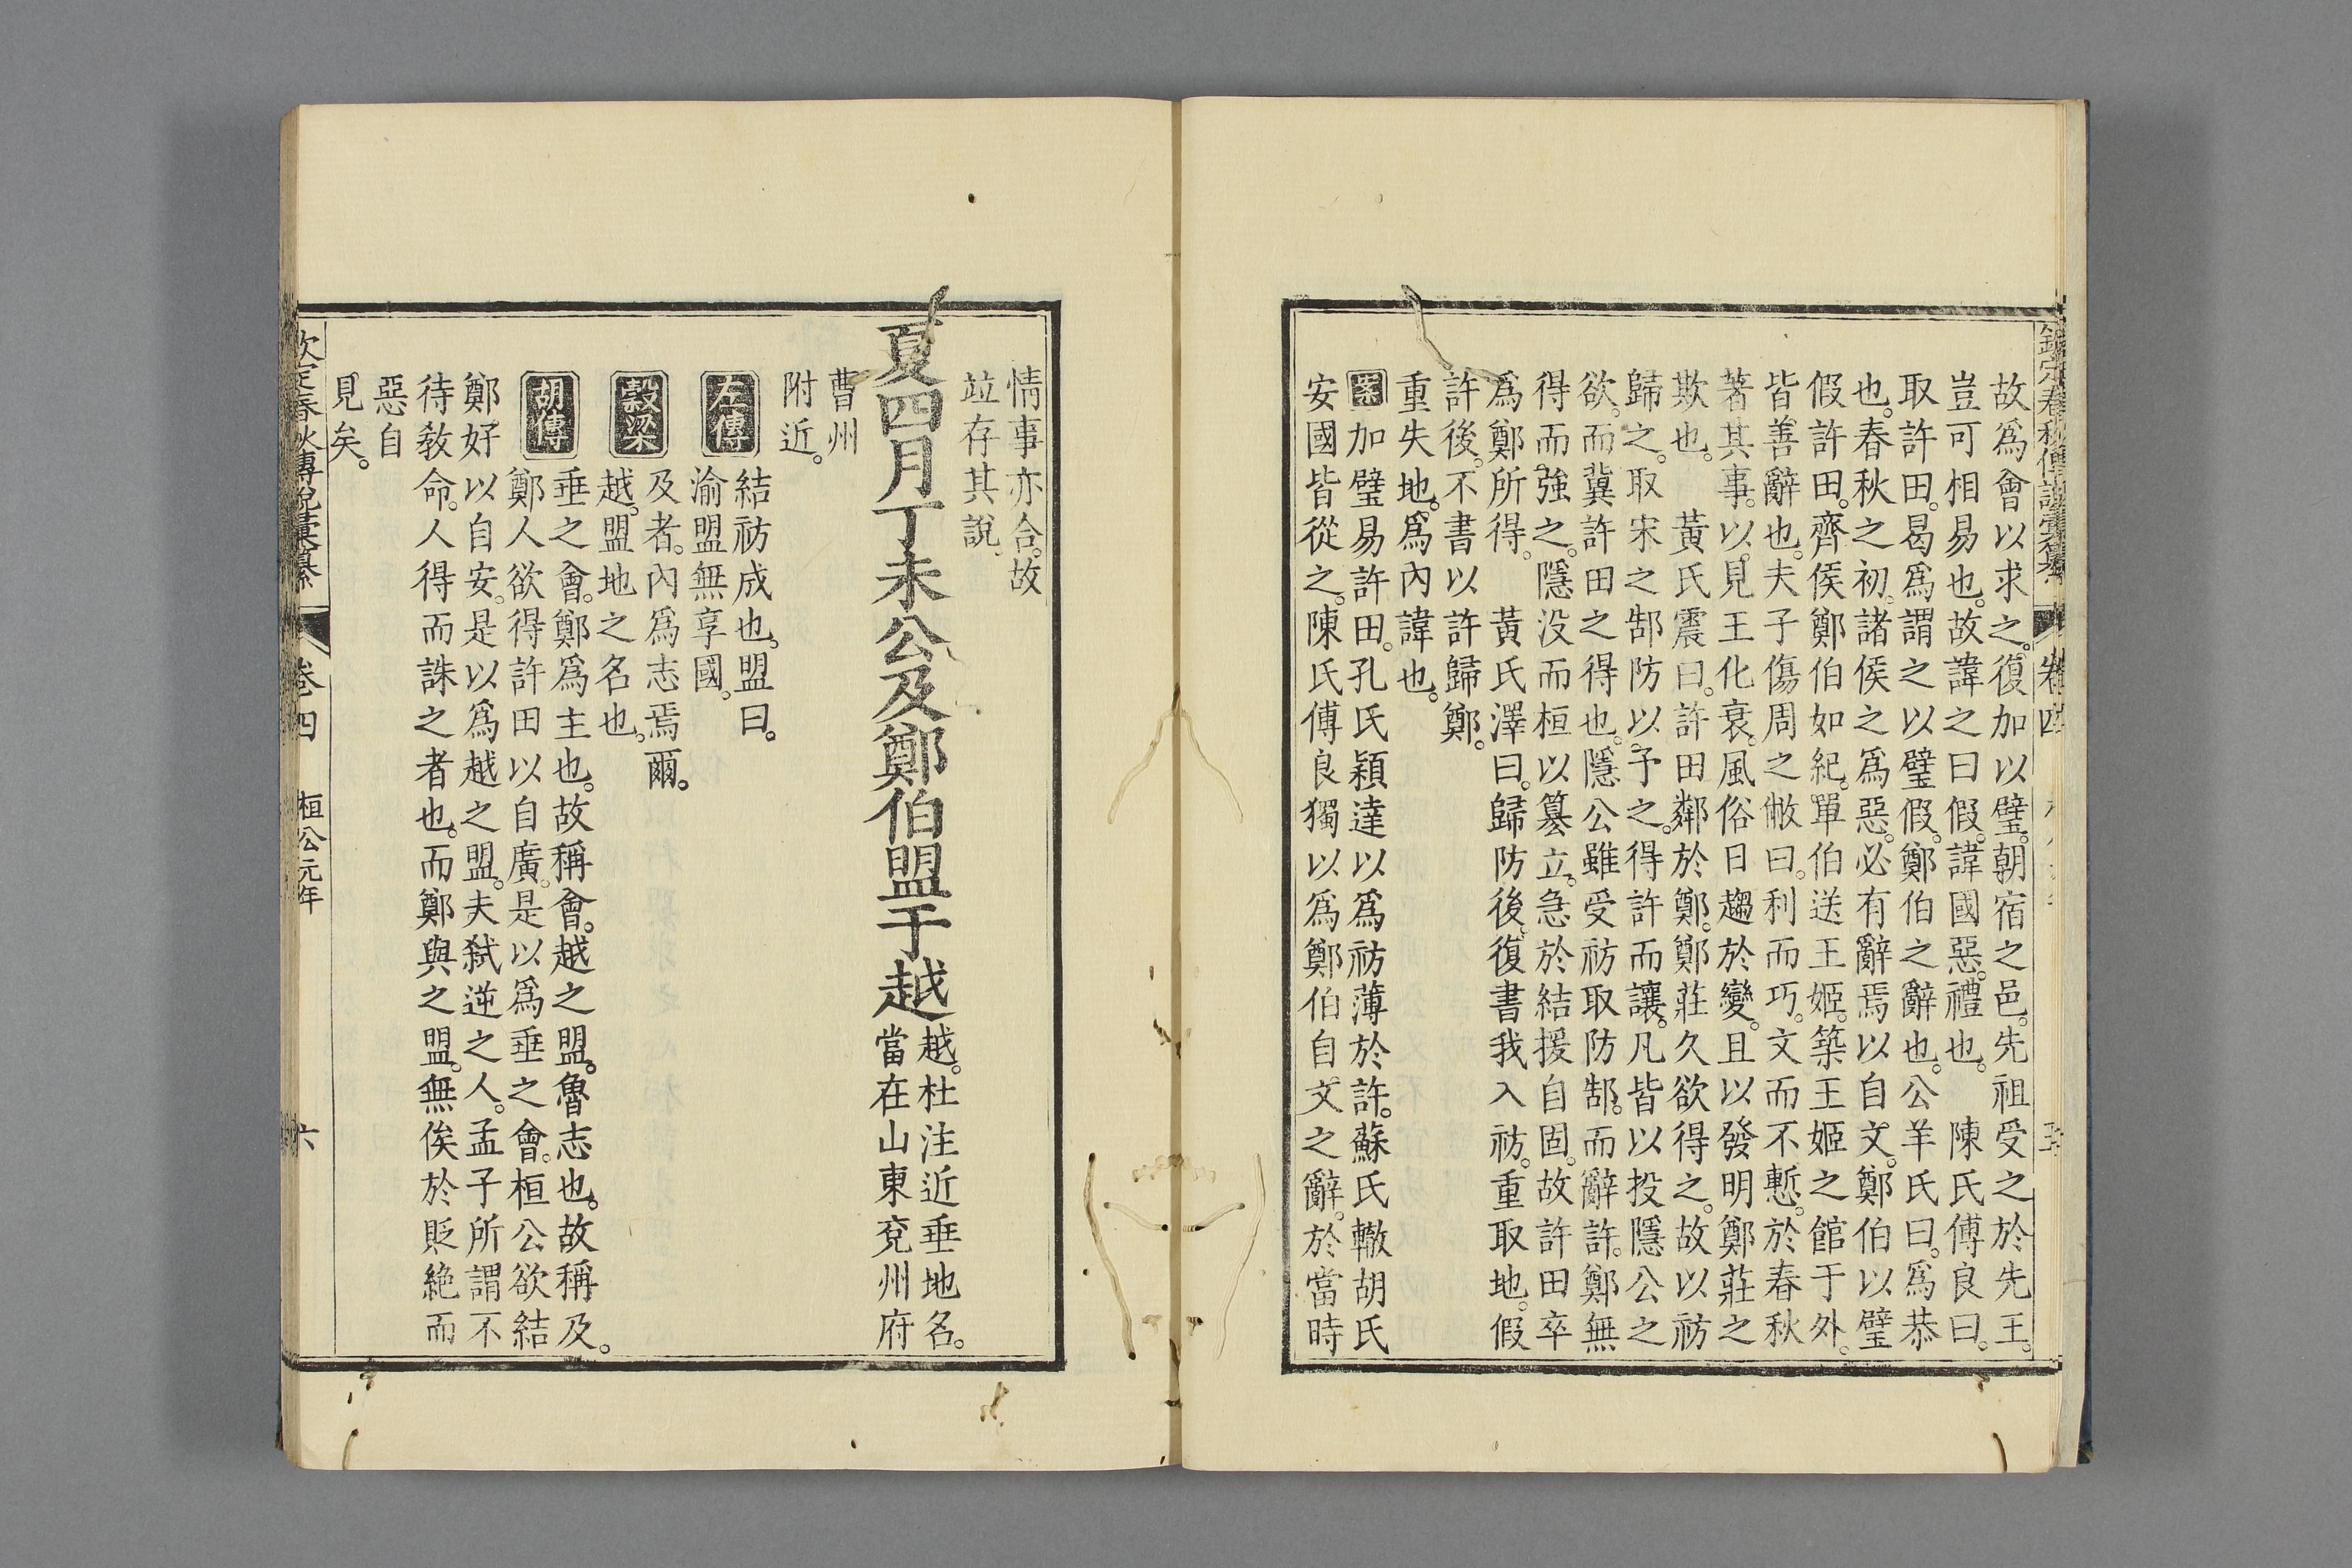 故爲會以求之。復加以璧。朝宿之邑。先祖受之於先王。
豈可相易也。故諱之曰假。諱國惡。禮也。　陳氏傅良曰。
取許田。曷爲謂之以璧假。鄭伯之辭也。公羊氏曰。爲恭
也。春秋之初。諸侯之爲惡。必有辭焉以自文。鄭伯以璧
假許田。齊侯鄭伯如紀。單伯送王姬。築王姬之館于外。
皆善辭也。夫子傷周之敝曰。利而巧。文而不慙。於春秋
著其事。以見王化衰。風俗日趨於變。且以發明鄭莊之
欺也。　黃氏震曰。許田鄰於鄭。鄭莊久欲得之。故以祊
歸之。取宋之郜防以予之。得許而讓。凡皆以投隱公之
欲。而冀許田之得也。隱公雖受祊取防郜。而辭許。鄭無
得而強之。隱没而桓以簒立。急於結援自固。故許田卒
爲鄭所得。　黃氏澤曰。歸防後。復書我入祊。重取地。假
許後。不書以許歸鄭。
重失地。爲內諱也。
案加璧易許田。孔氏穎達以爲祊薄於許。蘇氏轍胡氏
安國皆從之。陳氏傅良獨以爲鄭伯自文之辭。於當時
情事亦合。故
竝存其說。
夏四月丁未公及鄭伯盟于越
越。杜注近垂地名。
當在山東兗州府
曹州
附近。
左傳
結祊成也。盟曰。
渝盟無享國。
穀梁
及者。內爲志焉爾。
越。盟地之名也。
胡傳
垂之會。鄭爲主也。故稱會。越之盟。魯志也。故稱及。
鄭人欲得許田以自廣。是以爲垂之會。桓公欲結
鄭好以自安。是以爲越之盟。夫弒逆之人。孟子所謂不
待敎命。人得而誅之者也。而鄭與之盟。無俟於貶絶而
惡自
見矣。
欽定春秋傳說彙纂　卷四　桓公元年　六